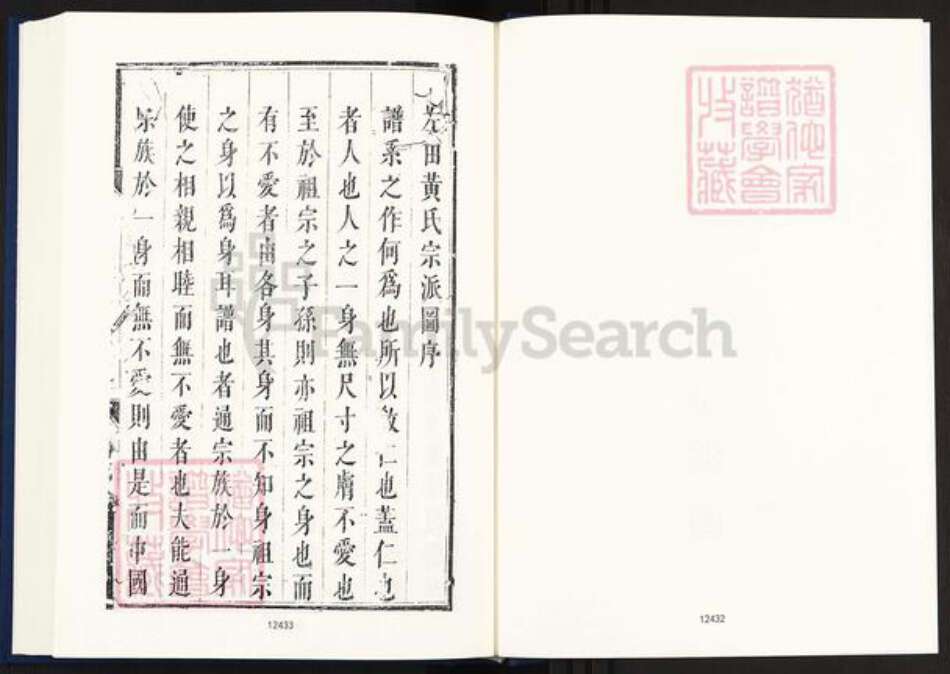 左田黃氏宗派圖序
譜系之作何爲也所以敦仁也蓋仁也
者人也人之一身無尺寸之膚不愛也
至於祖宗之子孫則亦祖宗之身也而
有不愛者由各身其身而不知身祖宗
之身以爲身耳譜也者通宗族於一身
使之相親相睦而無不愛者也夫能通
宗族於一身而無不愛則由是而中國
12433
猶他家
譜學會
收藏
12432
FamilySearch